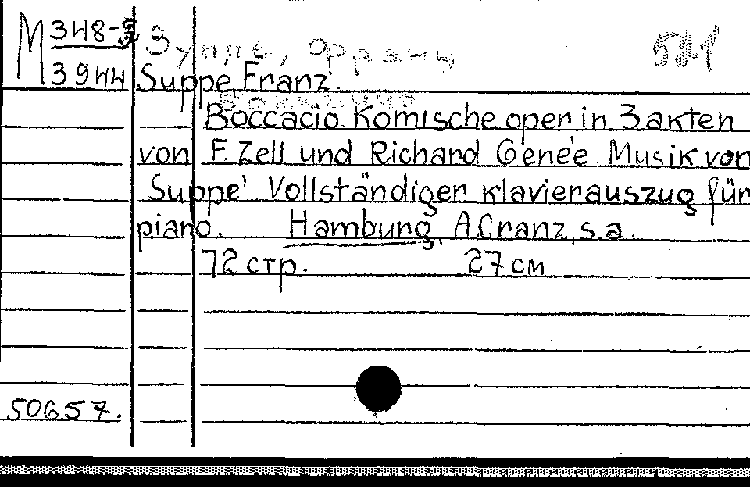 M 348-3
Зуппе, Франц 521
3944 Suppe Franz.
Boccacio Komische oper in 3 akten
von F. Zell und Richard Genée Musik von
Suppe' Vollständiger Klavierauszug für
piano. Hamburg, A. Cranz, s.a.
72 стр. 27 см
50657.